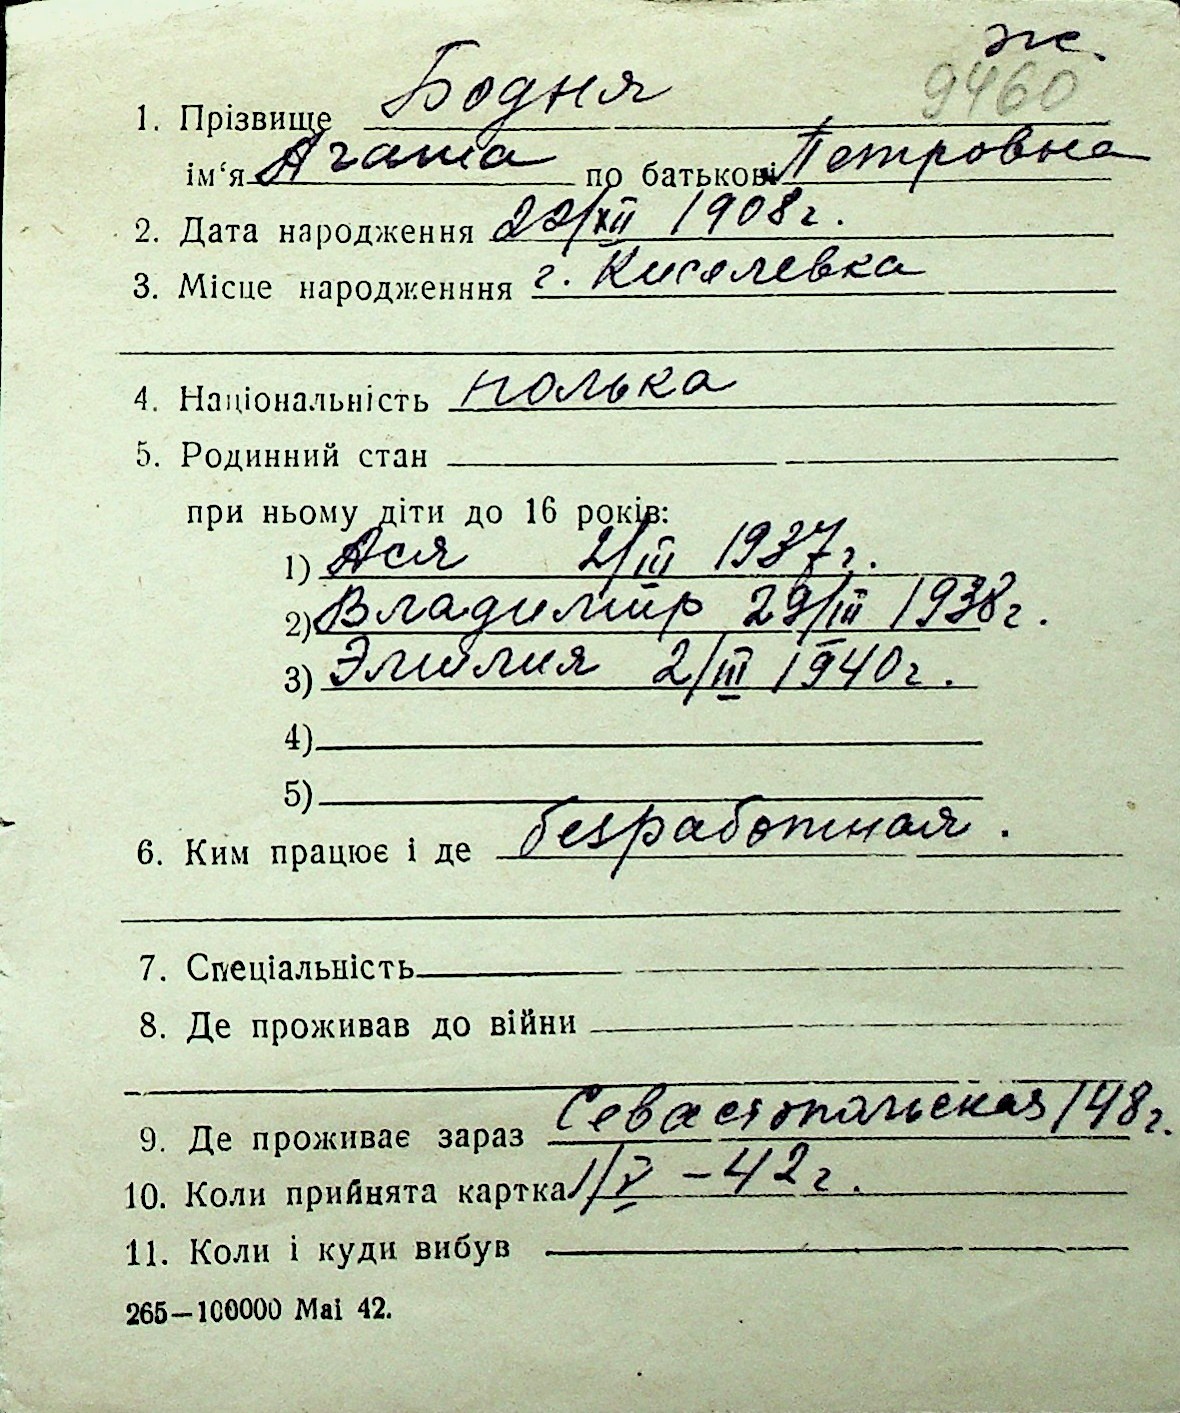 ж.
9460
1. Прізвище Бодня
ім‘я Агата по батькові Петровна
2. Дата народження 22/XII 1908 г.
3. Місце народженння г. Киселевка
4. Національність полька
5. Родинний стан
при ньому діти до 16 років:
1) Ася 2/III 1937 г.
2) Владимир 29/III 1938 г.
3) Эмилия 2/III 1940 г.
4)
5)
6. Ким працює і де безработная.
7. Спеціальність
8. Де проживав до війни
9. Де проживає зараз Севастопольская 148 г.
10. Коли прийнята картка 1/V – 42 г.
11. Коли і куди вибув
265—100000 Mai 42.